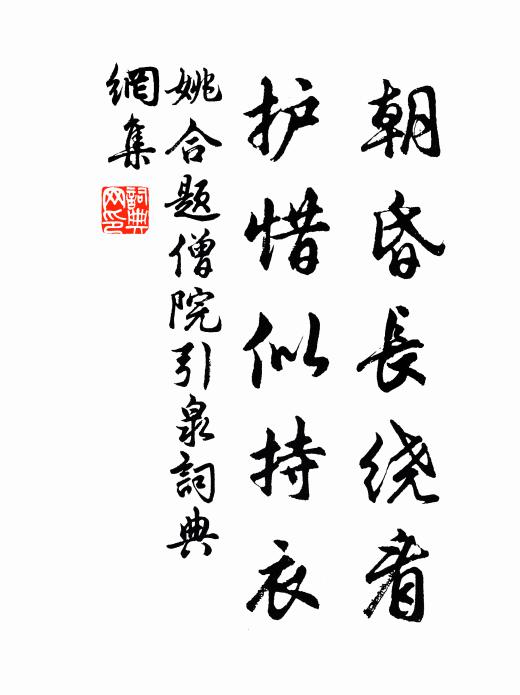 朝昏長绕看
护惜似持衣
姚合题僧院引泉詞典
網集
詞典
网印